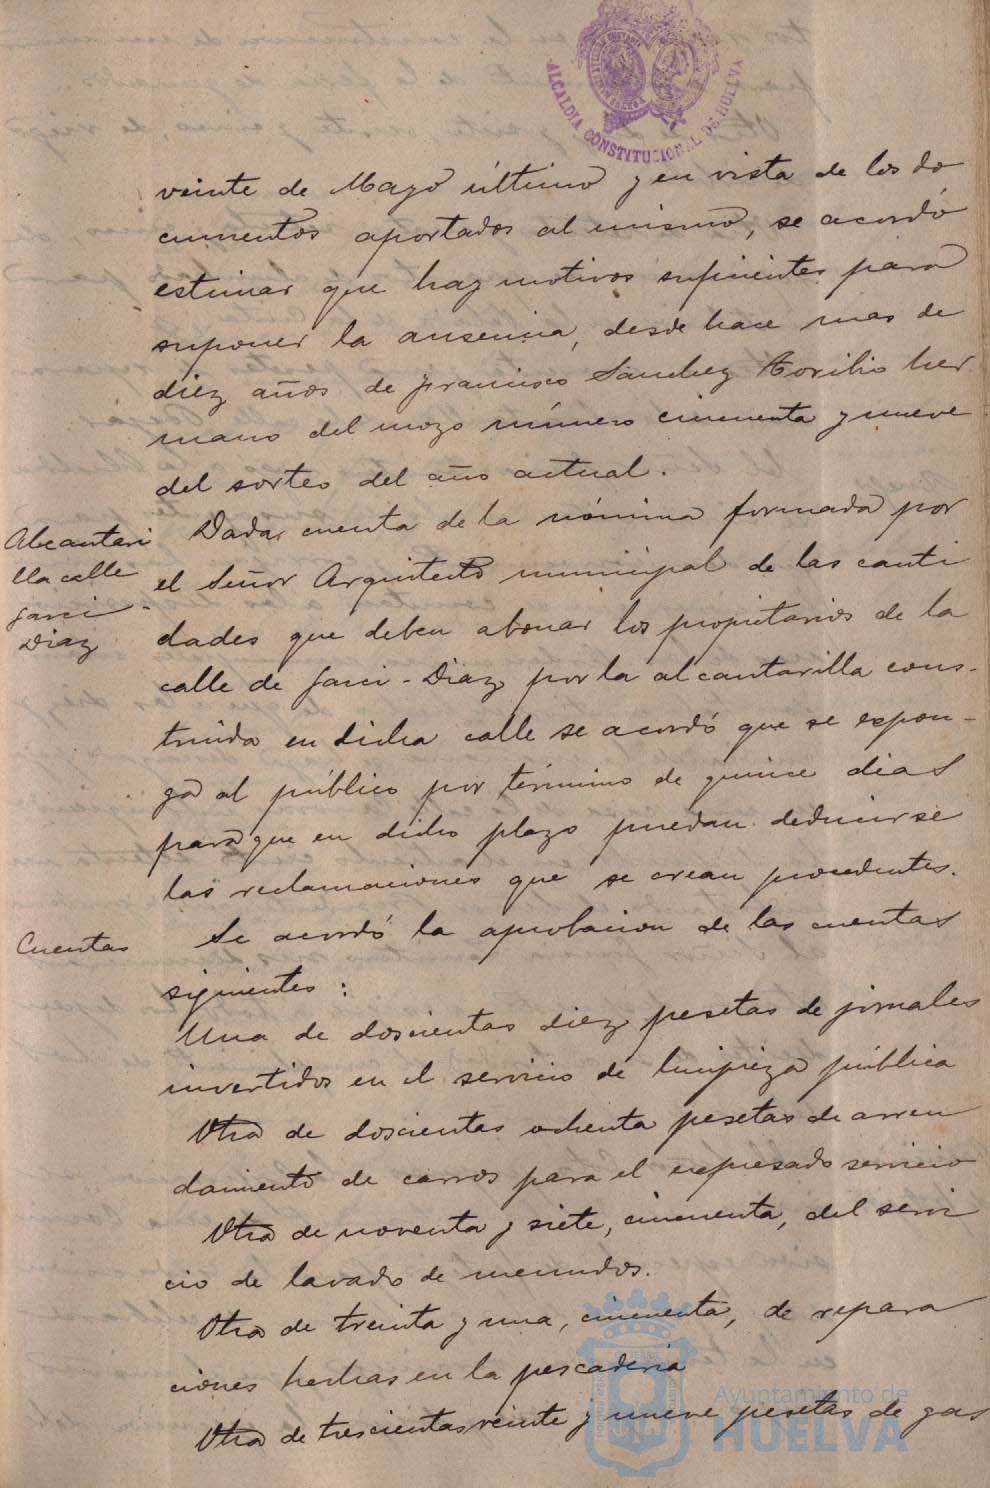 ALCALDIA CONSTITUCIONAL DE HUELVA
veinte de Mayo último y en vista de los do
cumentos aportados al mismo, se acordó
estimar que hay motivos suficientes para
suponer la ausencia, desde hace mas de
diez años de Francisco Sanchez Toribio her
mano del mozo número cincuenta y nueve
del sorteo del año actual.
Alcantari
lla calle
Garci-
Diaz
Dada cuenta de la nómina formada por
el Señor Arquitecto municipal de las canti
dades que deben abonar los propietarios de la
calle de Garci-Diaz por la alcantarilla cons-
truida en dicha calle se acordó que se espon-
ga al público por término de quince dias
para que en dicho plazo puedan deducirse
las reclamaciones que se crean procedentes.
Cuentas
Se acordó la aprobacion de las cuentas
siguientes:
Una de doscientas diez pesetas de jornales
invertidos en el servicio de limpieza pública
Otra de doscientas ochenta pesetas de arren
damiento de carros para el expresado servicio
Otra de noventa y siete, cincuenta, del servi
cio de lavado de menudos.
Otra de treinta y una, cincuenta, de repara
ciones hechas en la pescaderia
Otra de trescientas veinte y nueve pesetas de gas
Ayuntamiento de
HUELVA